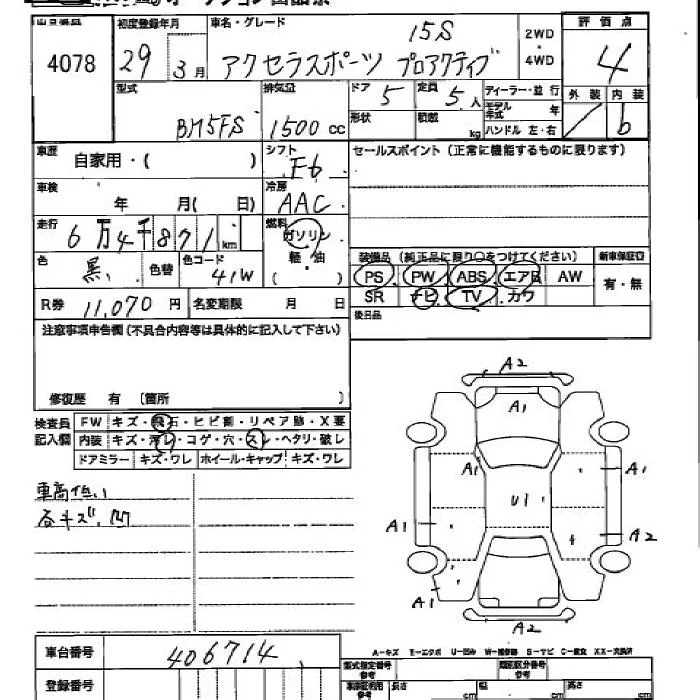 出品番号 初度登録年月 車名・グレード 15S 2WD・4WD 評価点
4078 29 3月 アクセラスポーツ プロアクティブ 4
型式 排気量 ドア 5 定員 5人 ディーラー・並行 外装 内装
BM5FS 1500cc 形状 積載 kg モデル年式 年 b
ハンドル 左・右
車歴 自家用・( ) シフト F6 セールスポイント(正常に機能するものに限ります)
車検 年 月( 日) 冷房 AAC
走行 6万4千871km 燃料 ガソリン
軽・油
( )
色 黒 色替 色コード 41W
装備品(純正品に限り○をつけてください) 新車保証書
PS PW ABS エアB AW 有・無
SR ナビ TV カワ
R券 11,070円 名変期限 月 日 後日品
注意事項申告欄(不具合内容等は具体的に記入して下さい)
修復歴 有 〔箇所 〕
検査員記入欄 FW キズ・飛石・ヒビ割・リペア跡・X要
内装 キズ・汚レ・コゲ・穴・スレ・ヘタリ・破レ
ドアミラー キズ・ワレ ホイール・キャップ キズ・ワレ
車高低い
各キズ、凹
A2
A1
A1 A1
U1
A1 A2
A1
A2
A-キズ E-エクボ U-凹み W-補修跡 S-サビ C-腐食 XX-交換済
車台番号 406714
型式指定番号 参考 類別区分番号 参考
登録番号 長さ cm 幅 cm 高さ cm